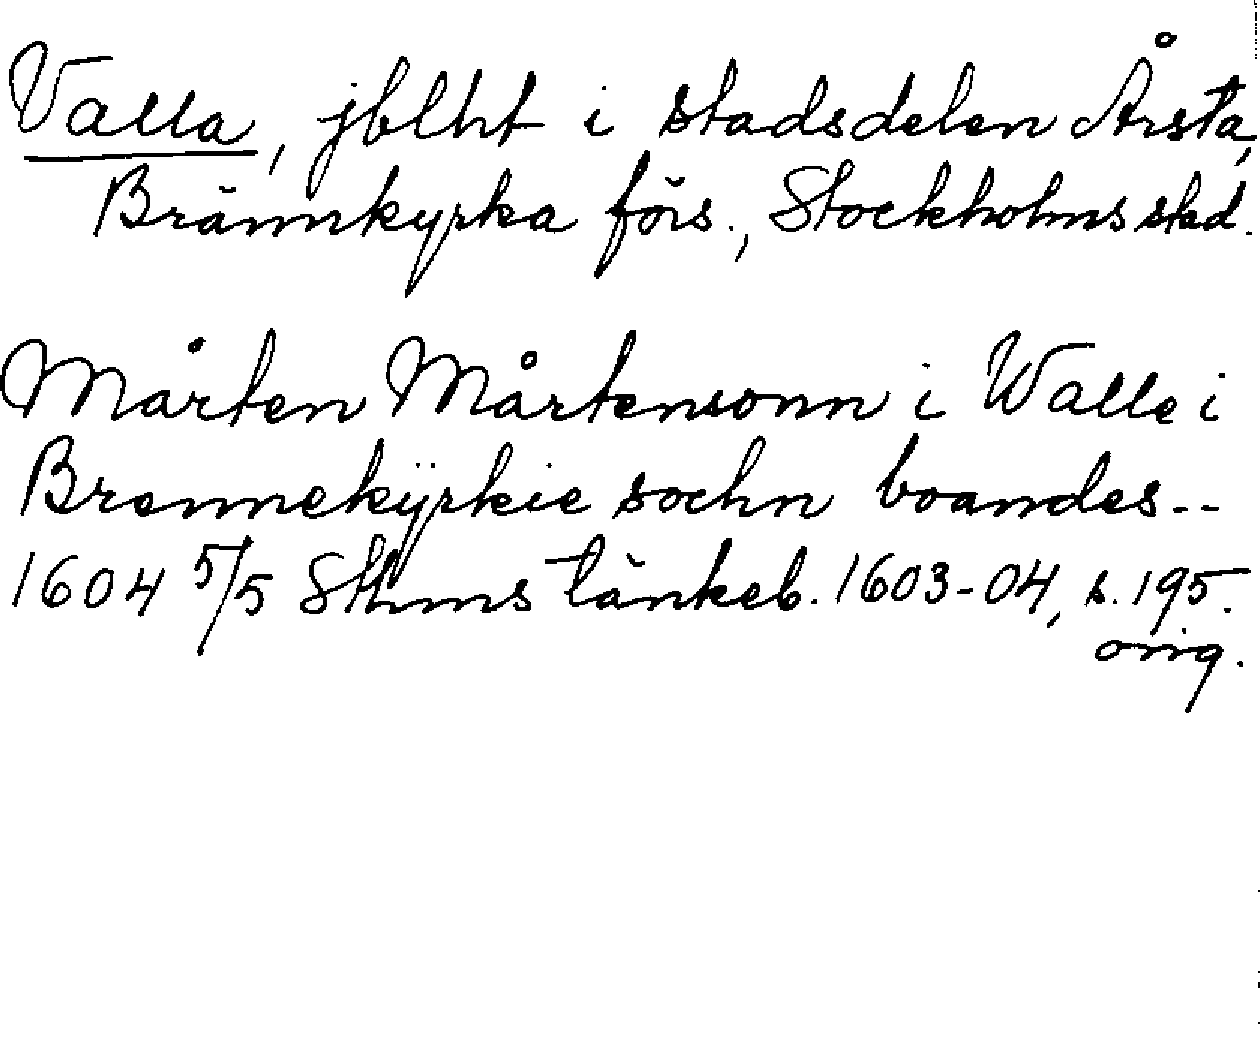 Valla, jblht i stadsdelen Årsta,
Brännkyrka förs., Stockholms stad.
Mårten Mårtensonn i Walle i
Brennekÿrkie sochn boandes--
1604 5/5 Sthms tänkeb. 1603-04, s. 195.
orig.